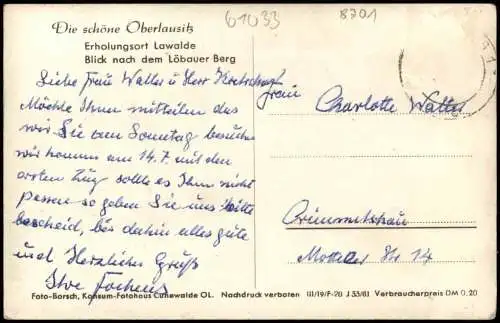 61033
8701
Die schöne Oberlausitz
Erholungsort Lawalde
Blick nach dem Löbauer Berg
Liebe Frau Walter u Herr
Möchte Ihnen mitteilen das
wir Sie am Sonntag besuche
wir kommen am 14.7. mit den
ersten Zug sollte es Ihn nicht
passen so geben Sie uns bitte
bescheid, bis dahin alles gute
und Herzliche Grüße
Ihre
Frau
Charlotte Walter
Crimmitschau
Str 14
Foto-Borsch, Konsum-Fotohaus Cunewalde OL. Nachdruck verboten III/19/F-20 J 33/61 Verbraucherpreis DM 0.20